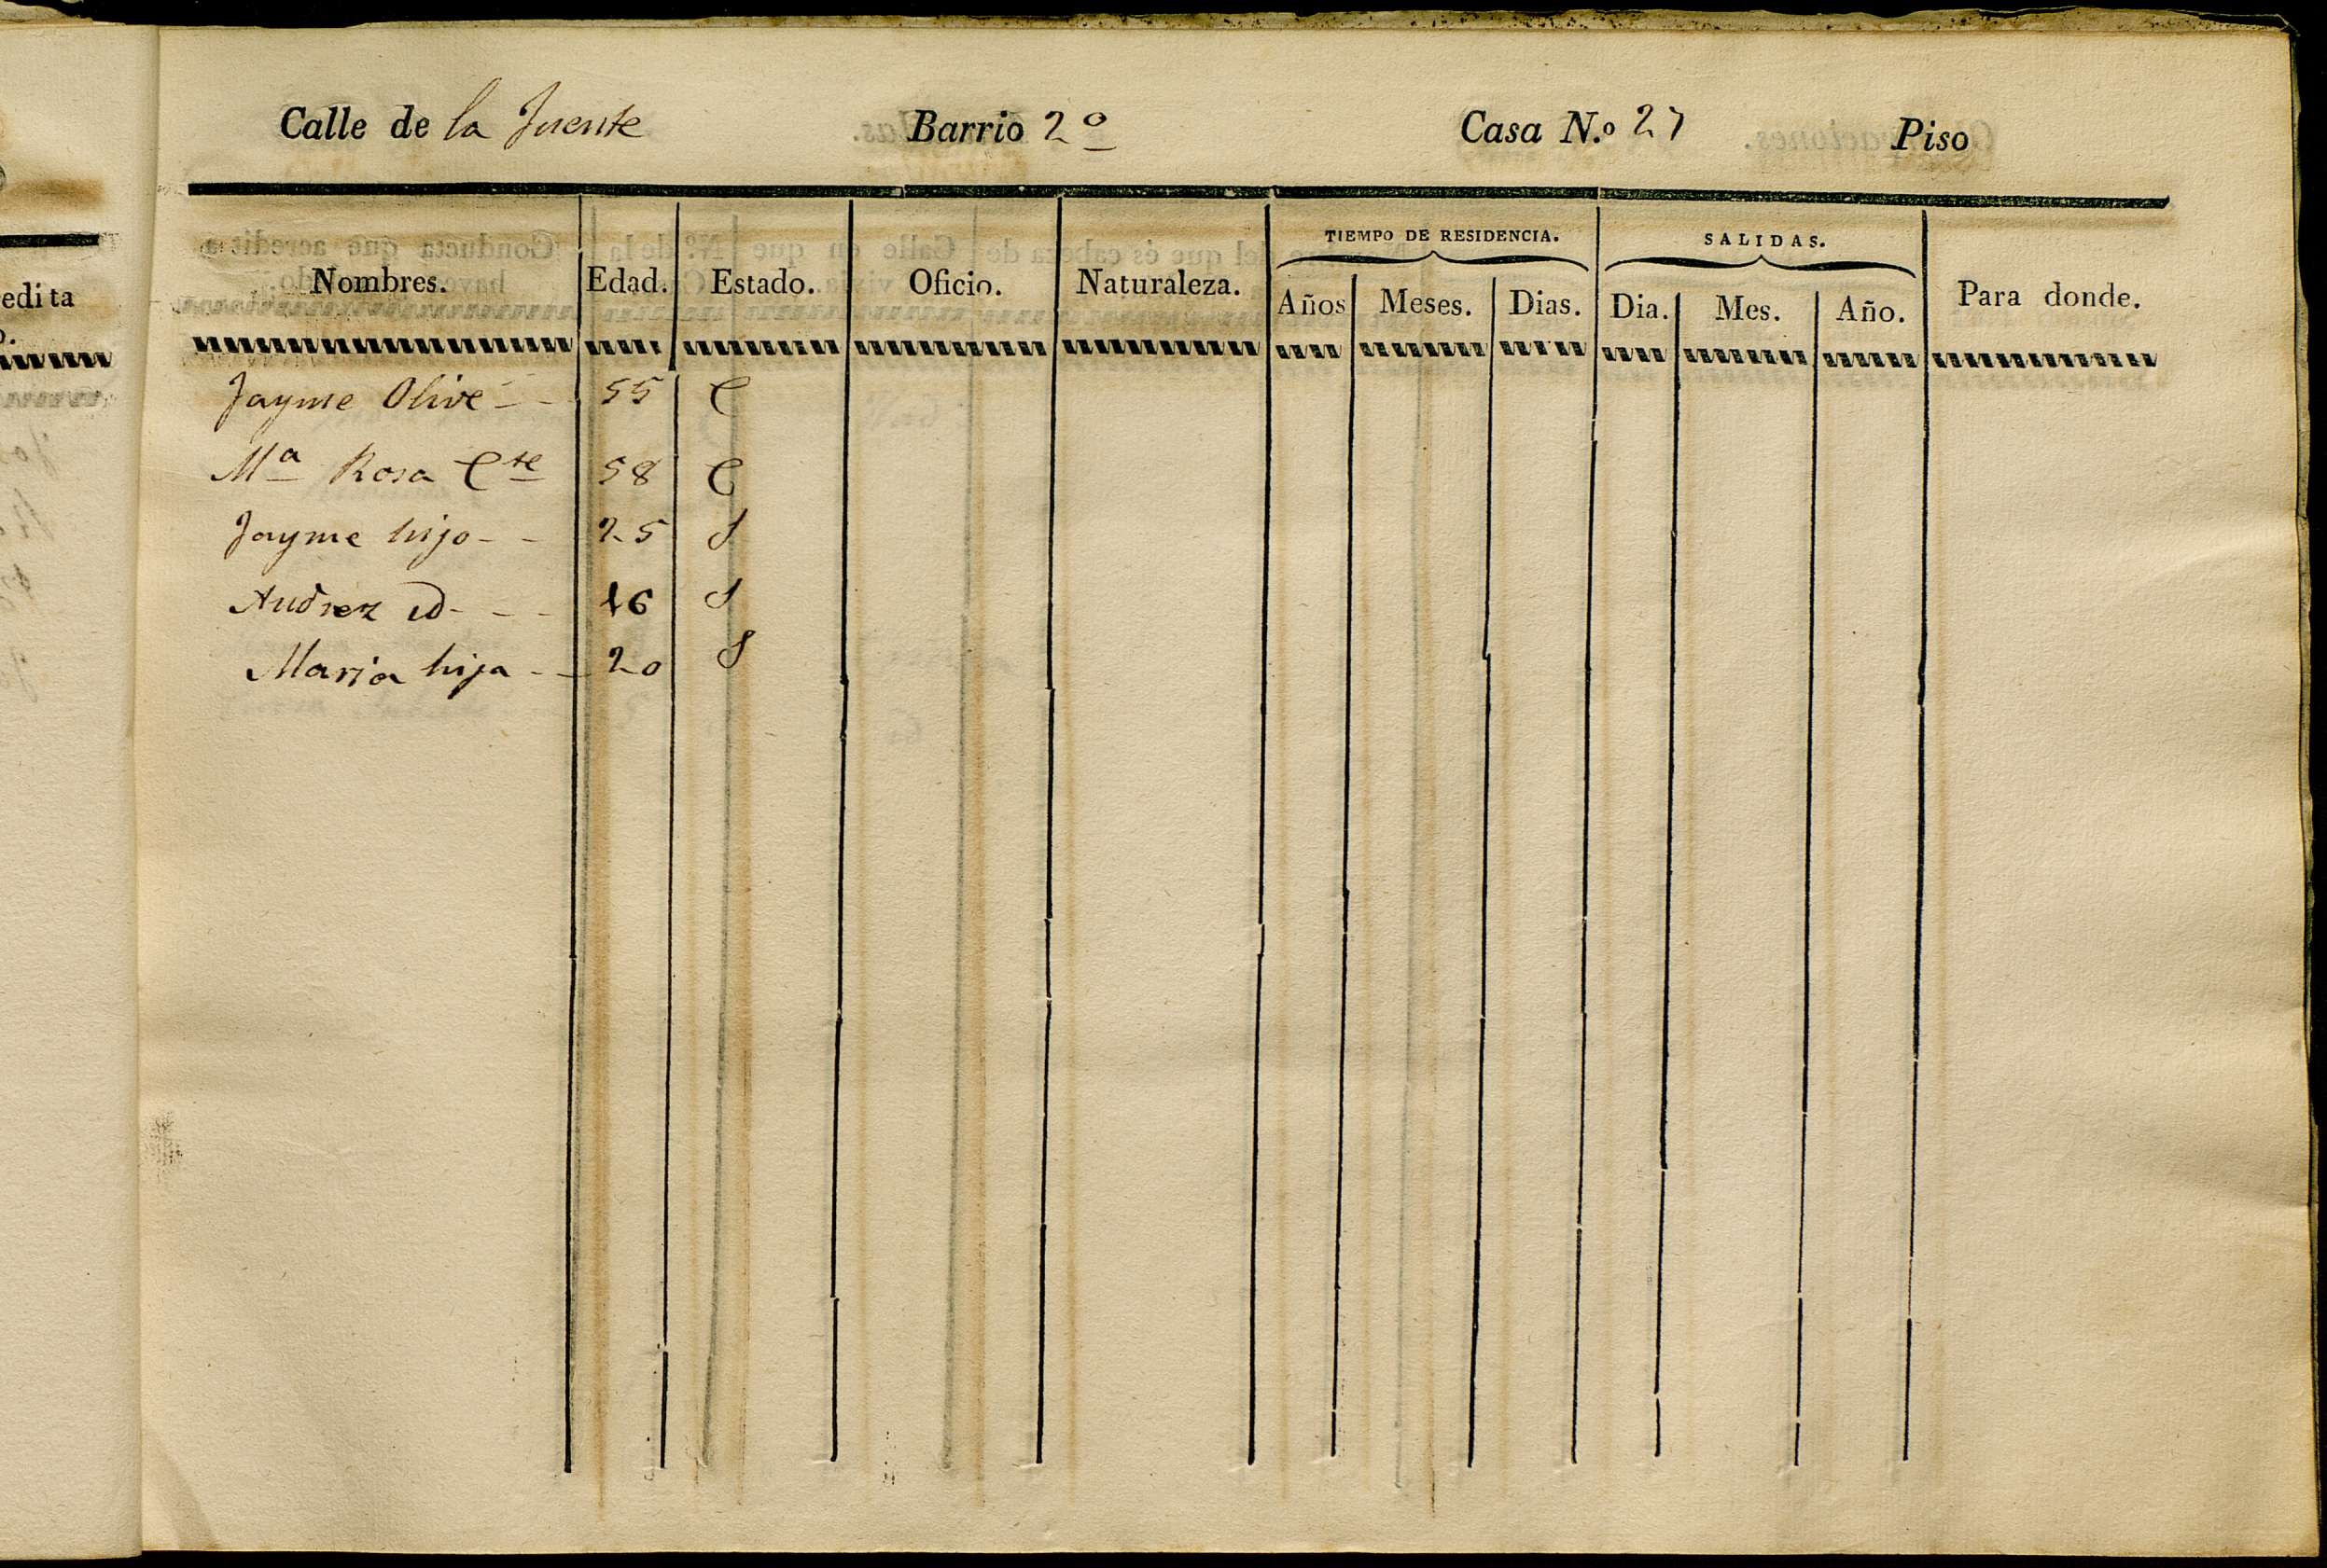 Calle de la fuente Barrio 2º Casa N.º 27 Piso
TIEMPO DE RESIDENCIA. SALIDAS.
Nombres. Edad. Estado. Oficio. Naturaleza. Años Meses. Dias. Dia. Mes. Año. Para donde.
Jayme Olive - - 55 C
Mª Rosa Cte 58 C
Jayme hijo - - 25 S
Andrez id - - - 16 S
Maria hija - - 20 S
edita
o.